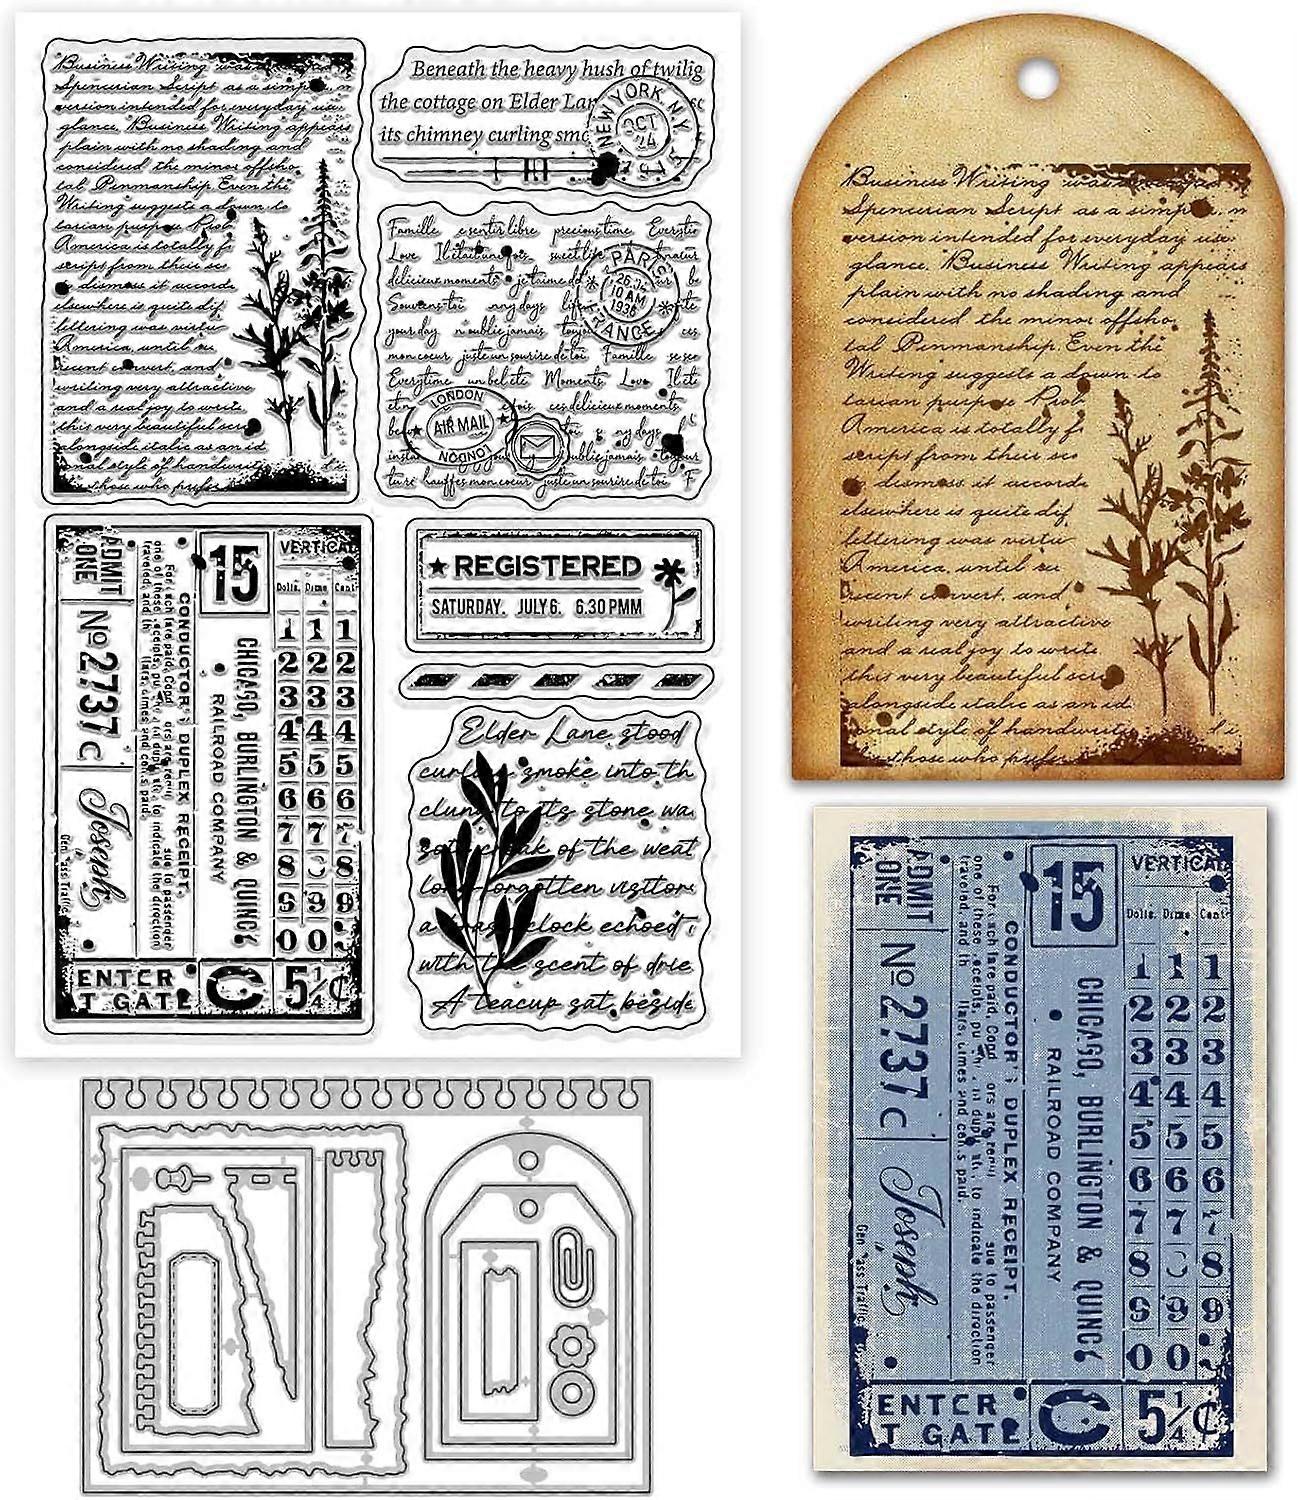 Business Writing was
Spencerian Script as a simp
version intended for everyday use
glance. Business Writing appears
plain with no shading and
considered the minor offsho
tal Penmanship. Even the
Writing suggests a down to
tarian purpose Prob
America is totally f
script from their sc
dismass it accorde
elsewhere is quite dif
lettering was virtu
America, until
and
writing very attractive
and a real joy to write
this very beautiful scri
alongside italic as an id
onal style of handwrit
those who prefer
Beneath the heavy hush of twilig
the cottage on Elder Lan
its chimney curling smo
NEW YORK N.Y.
OCT
24
1915
Famille esentir libre precious time Everytio
Love
délicieux moments je t'aime
Souviens-toi any days
your day n'oublie jamais
mon coeur juste un sourire de toi Famille
Everytime un bel été Moments Love Il éte
ces délicieux moments
ny days
oublie jamais
hauffes mon coeur juste un sourire de toi F
PARIS
10 AM
1936
FRANCE
LONDON
AIR MAIL
LONDON
ADMIT
ONE
No 2737 C
Joseph
Gen Pass Traffic
CONDUCTOR'S DUPLEX RECEIPT.
For each fare paid, Cond ors are requi sue to passenger
one of these receipts, pu in dupl to indicate the direction
traveled, and th llars, dimes and cents paid.
15
CHICAGO, BURLINGTON & QUINCY
RAILROAD COMPANY
VERTICAL
Dolls. Dime Cent
1 1 1
2 2 2
3 3 3
4 4 4
5 5 5
6 6 6
7 7 7
8 8
9 9 9
0 0
ENTER
T GATE
C
5¼¢
REGISTERED
SATURDAY. JULY 6. 6.30 PMM
Elder Lane stood
curl smoke into th
clung to its stone wa
oak of the weat
long forgotten visitors
clock echoed
with the scent of drie
A teacup sat beside
Business Writing was
Spencerian Script as a simp
version intended for everyday use
glance. Business Writing appears
plain with no shading and
considered the minor offsho
tal Penmanship. Even the
Writing suggests a down to
tarian purpose Prob
America is totally f
script from their sc
dismass it accorde
elsewhere is quite dif
lettering was virtu
America, until
and
writing very attractive
and a real joy to write
this very beautiful scri
alongside italic as an id
onal style of handwrit
those who prefer
ADMIT
ONE
No 2737 C
Joseph
Gen Pass Traffic
CONDUCTOR'S DUPLEX RECEIPT.
For each fare paid, Cond ors are requi sue to passenger
one of these receipts, pu in dupl to indicate the direction
traveled, and th llars, dimes and cents paid.
15
CHICAGO, BURLINGTON & QUINCY
RAILROAD COMPANY
VERTICAL
Dolls. Dime Cent
1 1 1
2 2 2
3 3 3
4 4 4
5 5 5
6 6 6
7 7 7
8 8
9 9 9
0 0
ENTER
T GATE
C
5¼¢